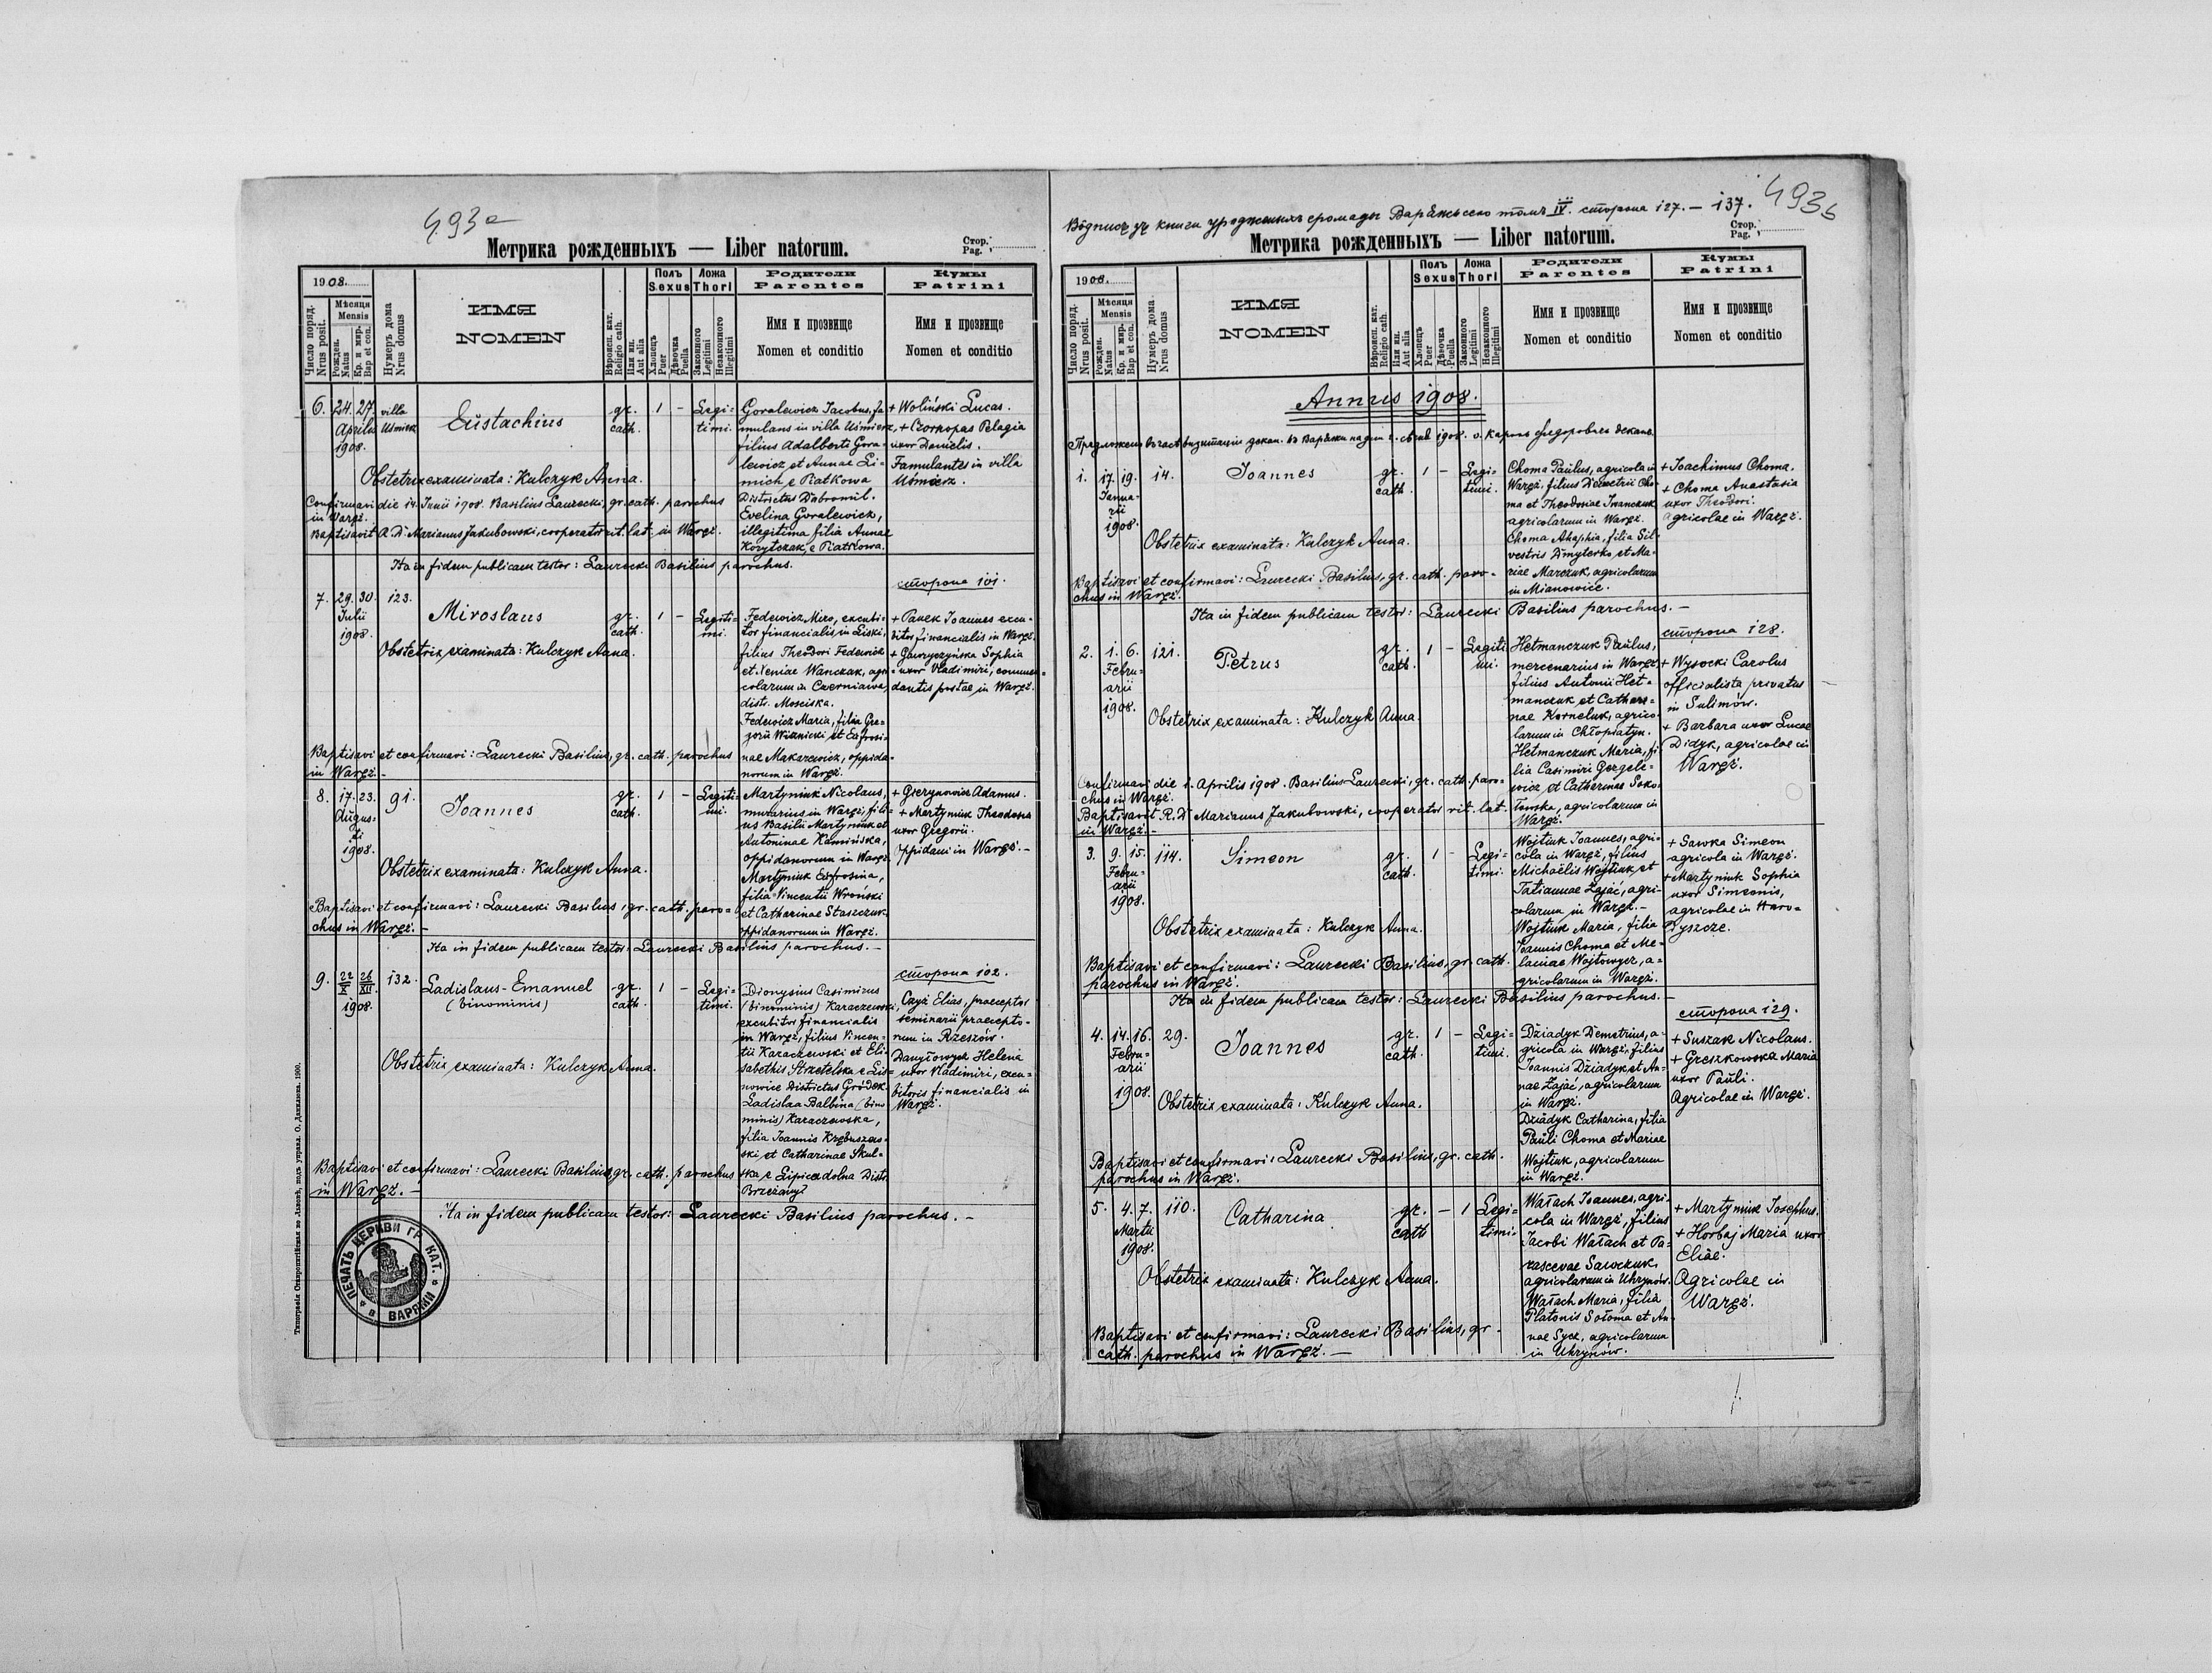 493a
Метрика рожденныхъ — Liber natorum.
Стор.
Pag.
1908.
Число поряд.
Nrus posit.
Мѣсяця
Mensis
Рожден.
Natus
Кр. и мир.
Bap et con.
Нумеръ дома
Nrus domus
ИМЯ
NOMEN
Вѣроисп. кат.
Religio cath.
Или ин.
Aut alia
Полъ
Sexus
Хлопецъ
Puer
Дѣвочка
Puella
Ложа
Thori
Законного
Legitimi
Незаконного
Illegitimi
Родители
Parentes
Имя и прозвище
Nomen et conditio
Кумы
Patrini
Имя и прозвище
Nomen et conditio
6. 24. 27. Aprilis 1908. villa Uśmierz
Eustachius
gr. cath. 1 – Legitimi.
Goralewicz Jacobus, fa-
mulans in villa Uśmierz,
filius Adalberti Gora-
lewicz et Annae Li-
mich e Piatkowa
Districtus Dobromil.
Evelina Goralewicz,
illegitima filia Annae
Korytczak, e Piatkowa.
+ Woliński Lucas.
+ Czorkopas Pelagia
uxor Danielis.
Famulantes in villa
Uśmierz.
Obstetrix examinata: Kulczyk Anna.
Confirmavi die 14. Junii 1908. Basilius Laurecki, gr. cath. parochus
in Waręż.
Baptisavit R. D. Marianus Jakubowski, cooperator rit. lat. in Waręż.
Ita in fidem publicam testor: Laurecki Basilius parochus.
сторона 101.
7. 29. 30. Julii 1908. 123.
Miroslaus
gr. cath. 1 – Legitimi.
Fedewicz Miro, excubi-
tor financialis in Liski,
filius Theodori Fedewicz
et Xeniae Wanczak, agri-
colarum in Czerniawa,
distr. Mosciska.
Fedewicz Maria, filia Gre-
gorii Wiznicki et Eufrosi-
nae Makarewicz, oppida-
norum in Waręż.
+ Panek Joannes excu-
bitor financialis in Waręż.
+ Gawryczyńska Sophia
uxor Vladimiri, commen-
dantis postae in Waręż.
Obstetrix examinata: Kulczyk Anna.
Baptisavi et confirmavi: Laurecki Basilius, gr. cath. parochus
in Waręż. –
8. 17. 23. Augusti 1908. 91.
Joannes
gr. cath. 1 – Legitimi.
Martyniuk Nicolaus,
murarius in Waręż, fili-
us Basilii Martyniuk et
Antoninae Kamińska,
oppidanorum in Waręż.
Martyniuk Eufrosina,
filia Vincentii Wroński
et Catharinae Staszczuk
oppidanorum in Waręż.
+ Gierynowicz Adamus.
+ Martyniuk Theodosia
uxor Gregorii.
Oppidani in Waręż. –
Obstetrix examinata: Kulczyk Anna.
Baptisavi et confirmavi: Laurecki Basilius, gr. cath. paro-
chus in Waręż. –
Ita in fidem publicam testor: Laurecki Basilius parochus. –
сторона 102.
9. 22/X 26/XII 1908. 132.
Ladislaus-Emanuel
(binominis)
gr. cath. 1 – Legitimi.
Dionysius Casimirus
(binominis) Karaczewski,
excubitor financialis
in Waręż, filius Vincen-
tii Karaczewski et Eli-
sabethis Strzetelska e Lis-
nowice Districtus Gródek.
Ladislaa Balbina (bino-
minis) Karaczewska,
filia Joannis Krzbuszew-
ski et Catharinae Skul-
ska e Lipicadolna Distr.
Brzeżany.
Czyż Elias, praeceptor
seminarii praecepto-
rum in Rzeszów.
Danyłowych Helena
uxor Vladimiri, excu-
bitoris financialis in
Waręż.
Obstetrix examinata: Kulczyk Anna.
Baptisavi et confirmavi: Laurecki Basilius, gr. cath. parochus
in Waręż. –
Ita in fidem publicam testor: Laurecki Basilius parochus. –
ПЕЧАТЬ ЦЕРКВИ ГР. КАТ. В ВАРЯЖИ
Типографія Ставропигійская во Львовѣ, подъ управл. О. Данилюка. 1900.
493b
Вôдписъ зъ книги урожденныхъ громады Варѣжъ село томъ IV. сторона 127. – 137.
Метрика рожденныхъ — Liber natorum.
Стор.
Pag.
1908.
Число поряд.
Nrus posit.
Мѣсяця
Mensis
Рожден.
Natus
Кр. и мир.
Bap et con.
Нумеръ дома
Nrus domus
ИМЯ
NOMEN
Вѣроисп. кат.
Religio cath.
Или ин.
Aut alia
Полъ
Sexus
Хлопецъ
Puer
Дѣвочка
Puella
Ложа
Thori
Законного
Legitimi
Незаконного
Illegitimi
Родители
Parentes
Имя и прозвище
Nomen et conditio
Кумы
Patrini
Имя и прозвище
Nomen et conditio
Annus 1908.
1. 17. 19. Januarii 1908. 14.
Joannes
gr. cath. 1 – Legitimi.
Choma Paulus, agricola in
Waręż, filius Demetrii Cho-
ma et Theodosiae Iwanczuk
agricolarum in Waręż.
Choma Ahaphia, filia Sil-
vestris Dmyterko, et Ma-
riae Marczuk, agricolarum
in Mianowice.
+ Joachimus Choma.
+ Choma Anastasia
uxor Theodori.
agricolae in Waręż.
Obstetrix examinata: Kulczyk Anna.
Baptisavi et confirmavi: Laurecki Basilius, gr. cath. paro-
chus in Waręż.
Ita in fidem publicam testor: Laurecki Basilius parochus. –
сторона 128.
2. 1. 6. Februarii 1908. 121.
Petrus
gr. cath. 1 – Legitimi.
Hetmanczuk Paulus,
mercenarius in Waręż,
filius Antonii Het-
manczuk et Cathari-
nae Korneluk, agrico-
larum in Chłopiatyn.
Hetmanczuk Maria, fi-
lia Casimiri Gergele-
wicz, et Catharinas Soko-
łowska, agricolarum in
Waręż.
+ Wysocki Carolus
officialista privatus
in Sulimów.
+ Barbara uxor Lucae
Didyk, agricolae in
Waręż.
Obstetrix examinata: Kulczyk Anna.
Confirmavi die 1. Aprilis 1908. Basilius Laurecki, gr. cath. paro-
chus in Waręż.
Baptisavit R. D. Marianus Jakubowski, cooperator rit. lat.
in Waręż. –
3. 9. 15. Februarii 1908. 114.
Simeon
gr. cath. 1 – Legitimi.
Wojtiuk Joannes, agri-
cola in Waręż, filius
Michaëlis Wojtiuk et
Tatiannae Zając, agri-
colarum in Waręż. –
Wojtiuk Maria, filia
Joannis Choma et Me-
laniae Wojtowycz, a-
gricolarum in Waręż.
+ Sawka Simeon
agricola in Waręż.
+ Martyniuk Sophia
uxor Simeonis,
agricolae in Horo-
dyszcze.
Obstetrix examinata: Kulczyk Anna.
Baptisavi et confirmavi: Laurecki Basilius, gr. cath.
parochus in Waręż.
Ita in fidem publicam testor: Laurecki Basilius parochus. –
сторона 129.
4. 14. 16. Februarii 1908. 29.
Joannes
gr. cath. 1 – Legitimi.
Dziadyk Demetrius, a-
gricola in Waręż, filius
Joannis Dziadyk et An-
nae Zając, agricolarum
in Waręż.
Dziadyk Catharina, filia
Pauli Choma et Mariae
Wojtiuk, agricolarum
in Waręż.
+ Suszak Nicolaus.
+ Greszkowska Maria
uxor Pauli.
Agricolae in Waręż.
Obstetrix examinata: Kulczyk Anna.
Baptisavi et confirmavi: Laurecki Basilius, gr. cath.
parochus in Waręż.
5. 4. 7. Martii 1908. 110.
Catharina
gr. cath – 1 Legitimi.
Wałach Joannes, agri-
cola in Waręż, filius
Jacobi Wałach et Pa-
rascevae Sawczuk,
agricolarum in Uhrynów.
Wałach Maria, filia
Platonis Sołoma et An-
nae Sycz, agricolarum
in Uhrynów.
+ Martyniuk Josephus.
+ Horbaj Maria uxor
Eliae.
Agricolae in
Waręż.
Obstetrix examinata: Kulczyk Anna.
Baptisavi et confirmavi: Laurecki Basilius, gr.
cath. parochus in Waręż. –